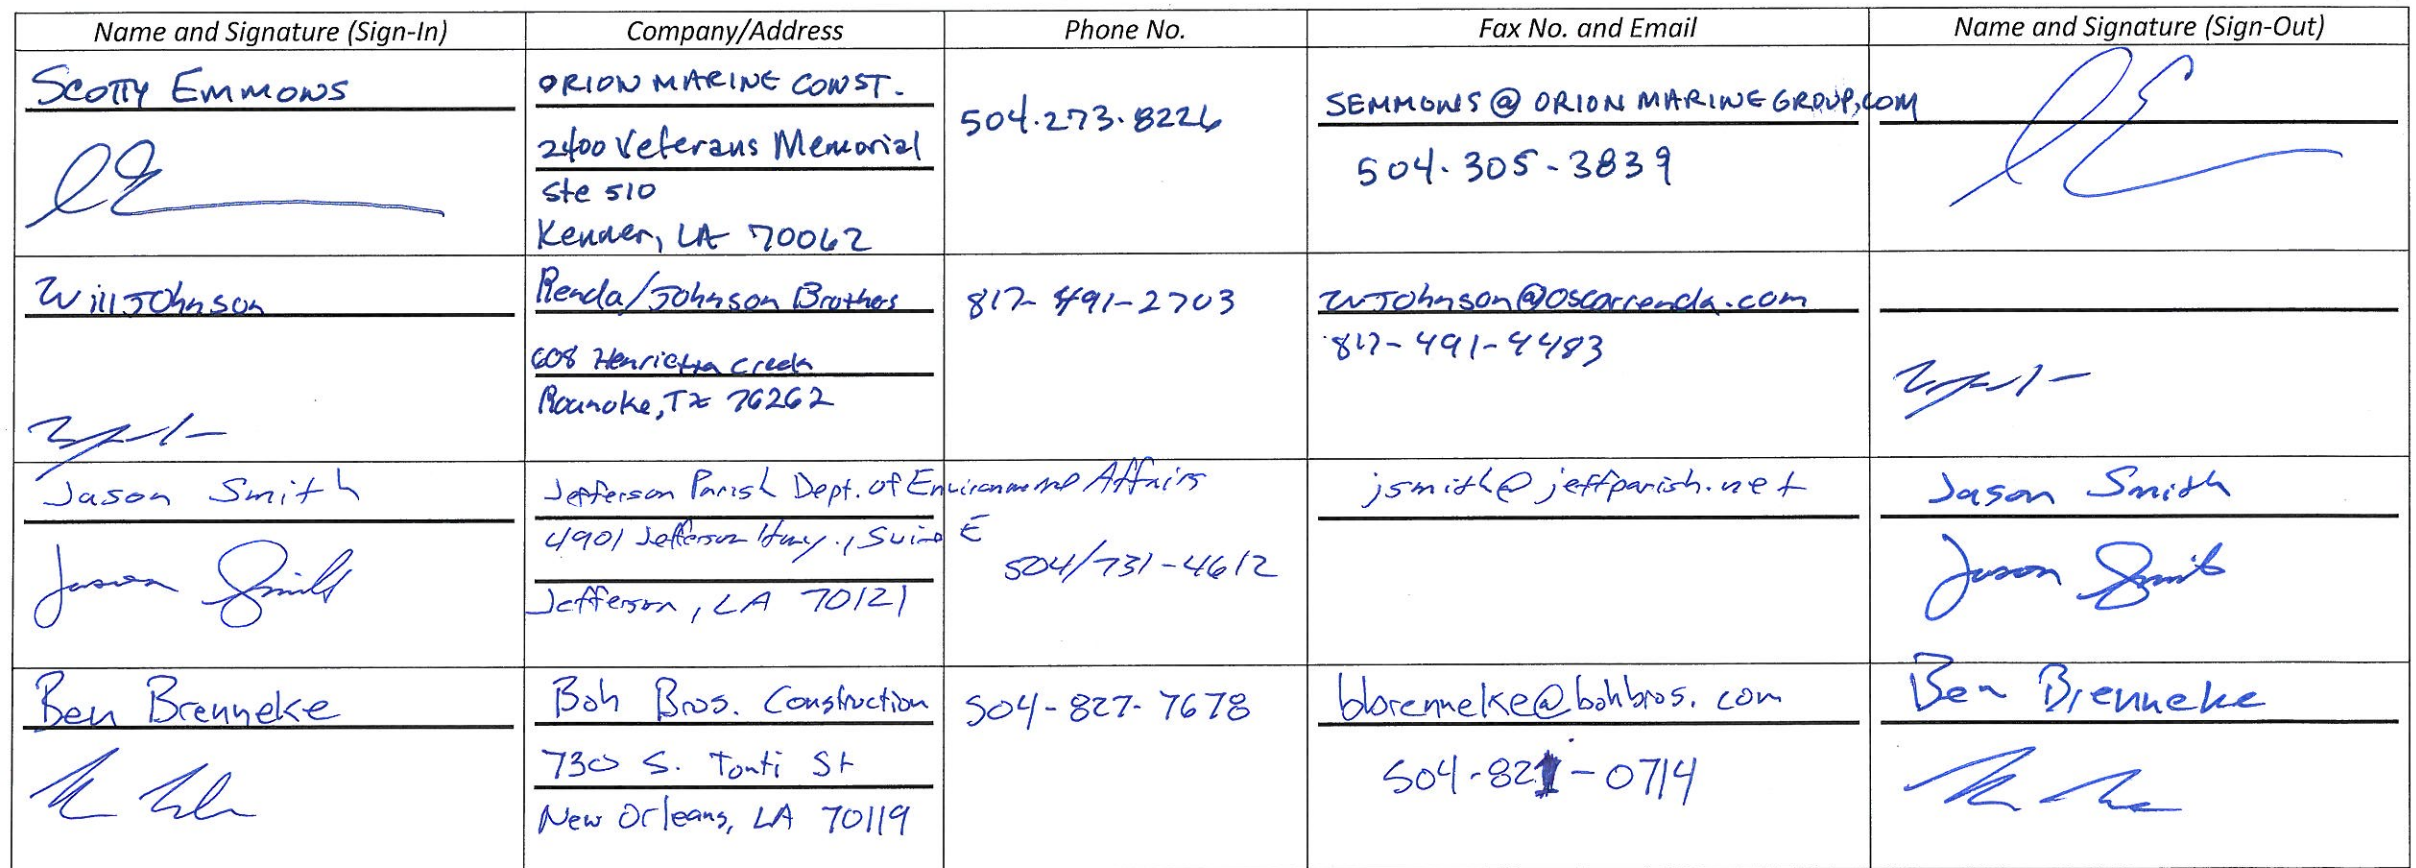 Name and Signature (Sign-In)
Company/Address
Phone No.
Fax No. and Email
Name and Signature (Sign-Out)
SCOTTY EMMONS
ORION MARINE CONST.
2400 Veterans Memorial
Ste 510
Kenner, LA 70062
504.273.8226
SEMMONS@ORIONMARINEGROUP.COM
504.305-3839
Will Johnson
Renda/Johnson Brothers
608 Henrietta Creek
Roanoke, TX 76262
817-491-2703
wjohnson@oscarrenda.com
817-491-4483
Jason Smith
Jason Smith
Jefferson Parish Dept. of Environmental Affairs
4901 Jefferson Hwy., Suite E
Jefferson, LA 70121
504/731-4612
jsmith@jeffparish.net
Jason Smith
Jason Smith
Ben Brenneke
Boh Bros. Construction
730 S. Tonti St
New Orleans, LA 70119
504-827-7678
bbrenneke@bohbros.com
504-821-0714
Ben Brenneke